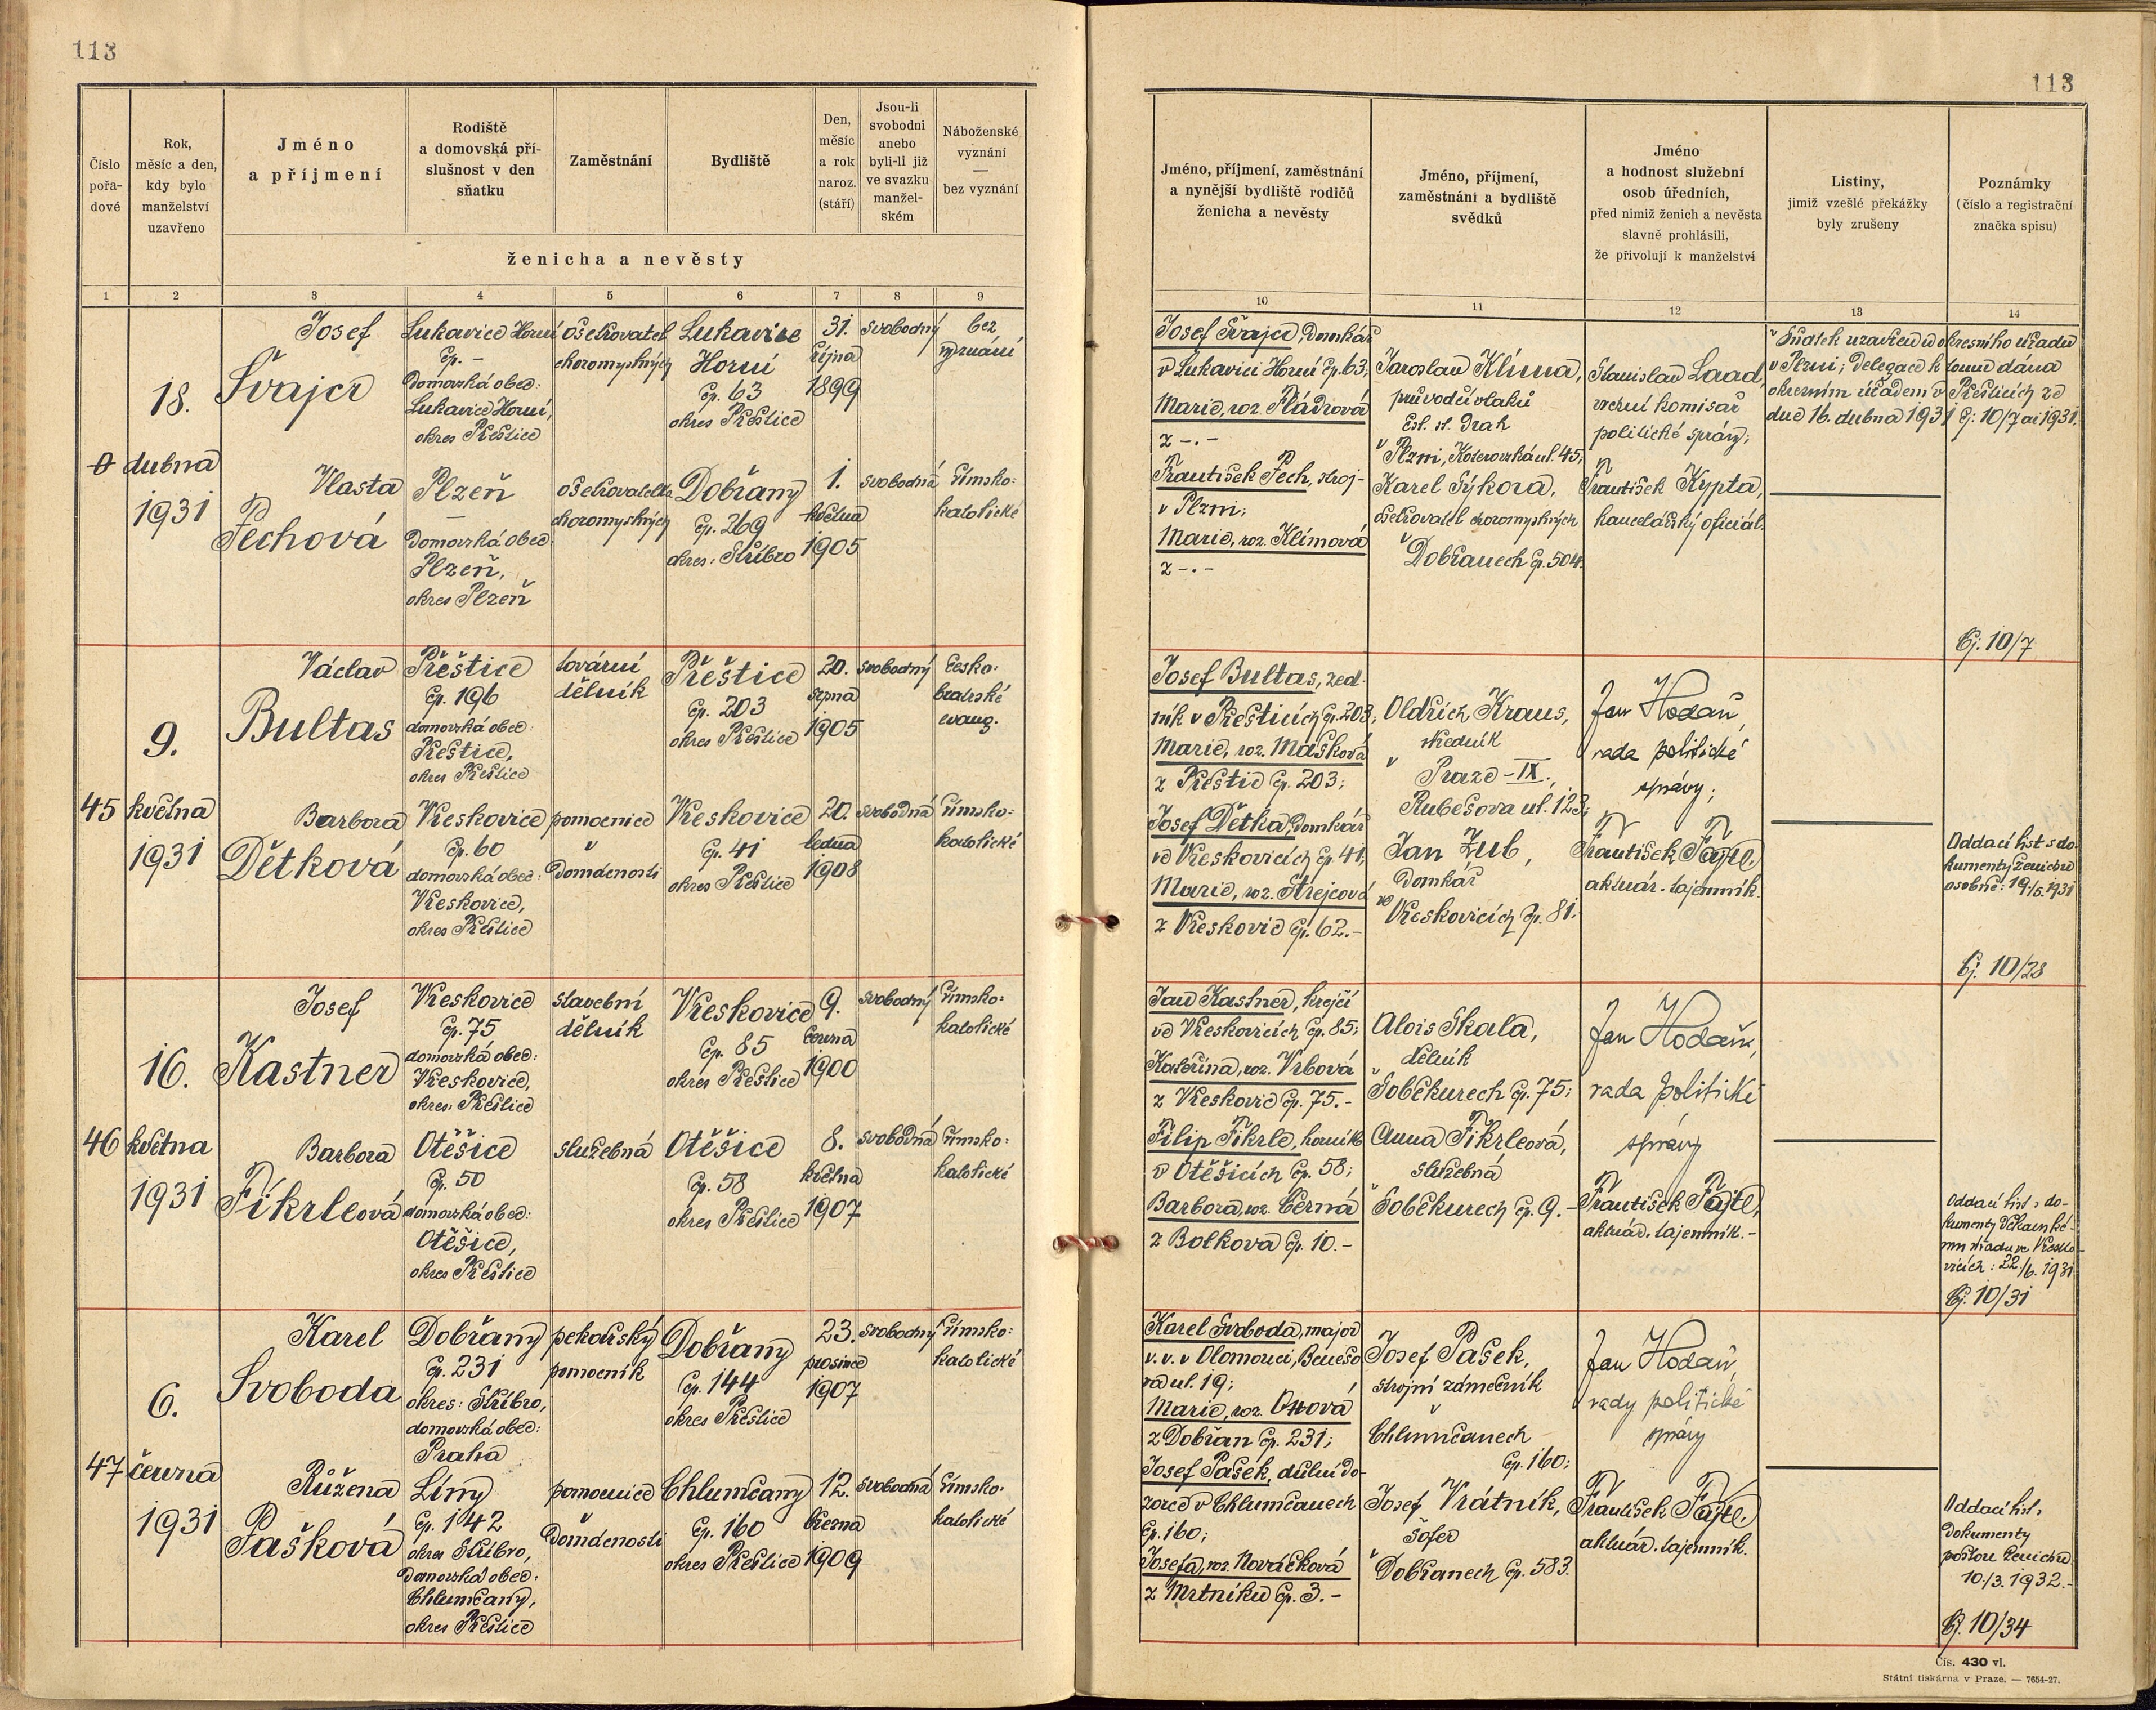 113
Číslo
pořa-
dové
Rok,
měsíc a den,
kdy bylo
manželství
uzavřeno
Jméno
a příjmení
Rodiště
a domovská pří-
slušnost v den
sňatku
Zaměstnání
Bydliště
Den,
měsíc
a rok
naroz.
(stáří)
Jsou-li
svobodni
anebo
byli-li již
ve svazku
manžel-
ském
Náboženské
vyznání
—
bez vyznání
ženicha a nevěsty
1 2 3 4 5 6 7 8 9
0
18.
dubna
1931
Josef
Švajcr
Lukavice Horní
čp. -
Domovská obec:
Lukavice Horní,
okres Přeštice
ošetřovatel
choromyslných
Lukavice
Horní
čp. 63
okres Přeštice
31.
října
1899
svobodný
bez
vyznání
Vlasta
Pechová
Plzeň
—
Domovská obec
Plzeň,
okres Plzeň
ošetřovatelka
choromyslných
Dobřany
čp. 269
okres: Stříbro
1.
května
1905
svobodná
římsko-
katolické
45
9.
května
1931
Václav
Bultas
Přeštice
čp. 196
domovská obec:
Přeštice,
okres Přeštice
tovární
dělník
Přeštice
čp. 203
okres Přeštice
20.
srpna
1905
svobodný
česko-
bratrské
evang.
Barbora
Dětková
Vřeskovice
čp. 60
domovská obec:
Vřeskovice,
okres Přeštice
pomocnice
v
domácnosti
Vřeskovice
čp. 41
okres Přeštice
20.
ledna
1908
svobodná
římsko-
katolické
46
16.
května
1931
Josef
Kastner
Vřeskovice
čp. 75
domovská obec:
Vřeskovice,
okres: Přeštice
stavební
dělník
Vřeskovice
čp. 85
okres Přeštice
9.
června
1900
svobodný
římsko-
katolické
Barbora
Fikrleová
Otěšice
čp. 50
domovská obec:
Otěšice,
okres Přeštice
služebná
Otěšice
čp. 58
okres Přeštice
8.
května
1907
svobodná
římsko-
katolické
47
6.
června
1931
Karel
Svoboda
Dobřany
čp. 231
okres: Stříbro,
domovská obec:
Praha
pekařský
pomocník
Dobřany
čp. 144
okres Přeštice
23.
prosince
1907
svobodný
římsko-
katolické
Růžena
Pašková
Líny
čp. 142
okres Stříbro,
Domovská obec:
Chlumčany,
okres Přeštice
pomocnice
v
domácnosti
Chlumčany
čp. 160
okres Přeštice
12.
března
1909
svobodná
římsko-
katolické
113
Jméno, příjmení, zaměstnání
a nynější bydliště rodičů
ženicha a nevěsty
Jméno, příjmení,
zaměstnání a bydliště
svědků
Jméno
a hodnost služební
osob úředních,
před nimiž ženich a nevěsta
slavně prohlásili,
že přivolují k manželství
Listiny,
jimiž vzešlé překážky
byly zrušeny
Poznámky
(číslo a registrační
značka spisu)
10 11 12 13 14
Josef Švajcr, Domkář
v Lukavici Horní čp. 63;
Marie, roz. Fládrová
z -.-
František Pech, stroj-
v Plzni;
Marie, roz. Klímová
z -.-
Jaroslav Klíma,
průvodčí vlaků
čsl. st. drah
v
Plzni, Koterovská ul. 45;
Karel Sýkora,
ošetřovatel choromyslných
v
Dobřanech čp. 504.
Stanislav Laad,
vrchní komisař
politické správy;
František Kypta,
kancelářský oficiál.
Sňatek uzavřen u okresního úřadu
v Plzni; Delegace k tomu dána
okresním úřadem v Přešticích ze
dne 16. dubna 1931 čj. 10/7 ai 1931.
Čj. 10/7
Josef Bultas, zed-
ník v Přešticích čp. 203;
Marie, roz. Mašková
z Přeštic čp. 203;
Josef Dětka, Domkář
ve Vřeskovicích čp. 41;
Marie, roz. Strejcová
z Vřeskovic čp. 62.-
Oldřich Kraus,
úředník
v
Praze - IX.,
Rubešova ul. 123;
Jan Zub,
Domkář
ve
Vřeskovicích čp. 81.
Jan Hodaň,
rada politické
správy;
František Fajtl,
aktuár. tajemník.
Oddací list s do-
kumenty ženichu
osobně: 19./5. 1931
Čj. 10/28
Jan Kastner, krejčí
ve Vřeskovicích čp. 85;
Kateřina, roz. Vrbová
z Vřeskovic čp. 75.-
Filip Fikrle, horník
v Otěšicích čp. 58;
Barbora, roz. Černá
z Bolkova čp. 10.-
Alois Skala,
dělník
v
Soběkurech čp. 75;
Anna Fikrleová,
služebná
v
Soběkurech čp. 9.-
Jan Hodaň,
rada politické
správy
František Fajtl,
aktuár. tajemník.-
Oddací list s do-
kumenty děkanské-
mu úřadu ve Vřesko-
vicích: 22/6. 1931
Čj. 10/31
Karel Svoboda, major
v. v. v Olomouci, Benešo
va ul. 19;
Marie, roz. Ottová
z Dobřan čp. 231;
Josef Pašek, důlní do-
zorce v Chlumčanech
čp. 160;
Josefa, roz. Nováčková
z Mrtníku čp. 3.-
Josef Pašek,
strojní zámečník
v
Chlumčanech
čp. 160;
Josef Vrátník,
šofer
v
Dobřanech čp. 583.
Jan Hodaň,
rady politické
správy
František Fajtl,
aktuár. tajemník.
Oddací list,
Dokumenty
poštou ženichu
10./3. 1932.-
Čj. 10/34
Čís. 430 vl.
Státní tiskárna v Praze. — 7654-27.